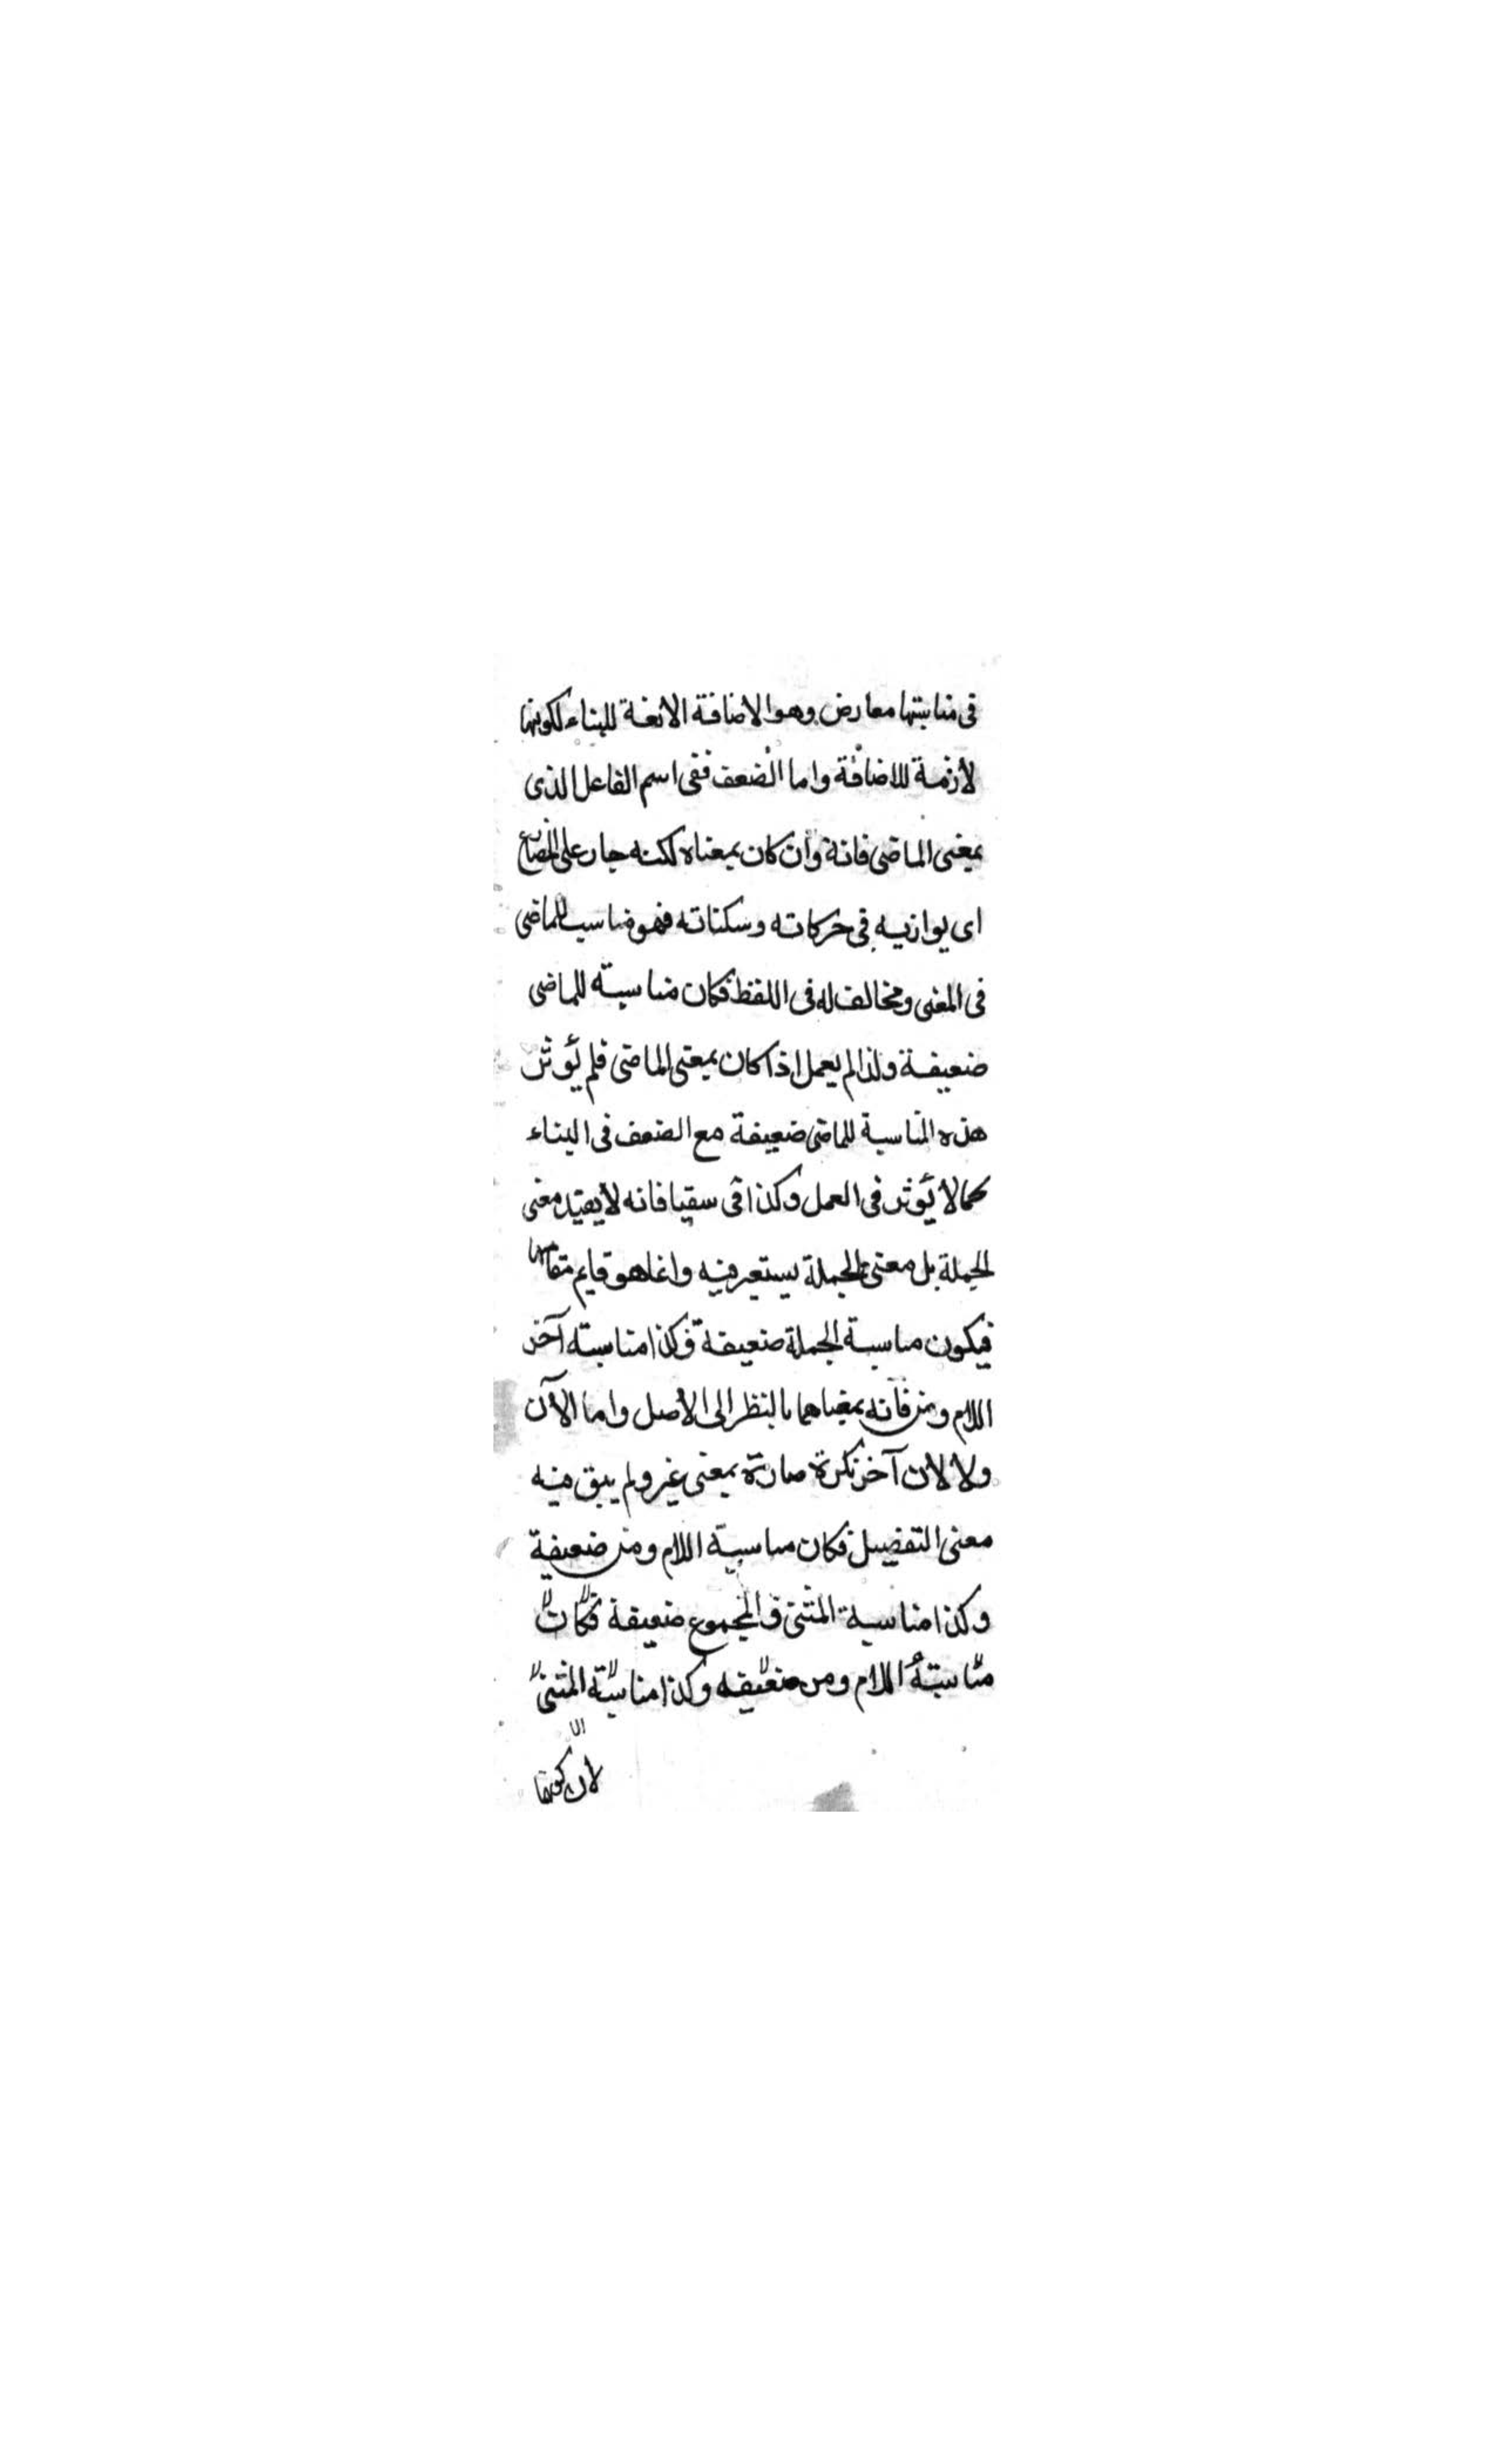 فى مناسبتها معارض وهو الاضافة الانعة للبناء لكونها
لازمة للاضافة واما الضعف ففى اسم الفاعل الذى
بمعنى الماضى فانه وان كان بمعناه لكنه جار على المضارع
اى يوازيه فى حركاته وسكناته فهو مناسب للماضى
فى المعنى ومخالف له فى اللفظ فكان مناسبته للماضى
ضعيفة ولذا لم يعمل اذا كان بمعنى الماضى فلم يؤثر
هذه المناسبة للماضى ضعيفة مع الضعف فى البناء
كما لا يؤثر فى العمل وكذا فى سقيا فانه لا يفيد معنى
الجملة بل معنى الجملة يستعير فيه وانما هو قايم مقامها
فيكون مناسبة الجملة ضعيفة وكذا مناسبته آخر
اللام ومن فانه بمعناهما بالنظر الى الاصل واما الآن
ولا لان آخر نكرة صارة بمعنى غير ولم يبق فيه
معنى التفضيل فكان مناسبة اللام ومن ضعيفة
وكذا مناسبة المثنى والمجموع ضعيفة فكان
مناسبته اللام ومن ضعيفه وكذا مناسبة المثنى
لان كونها